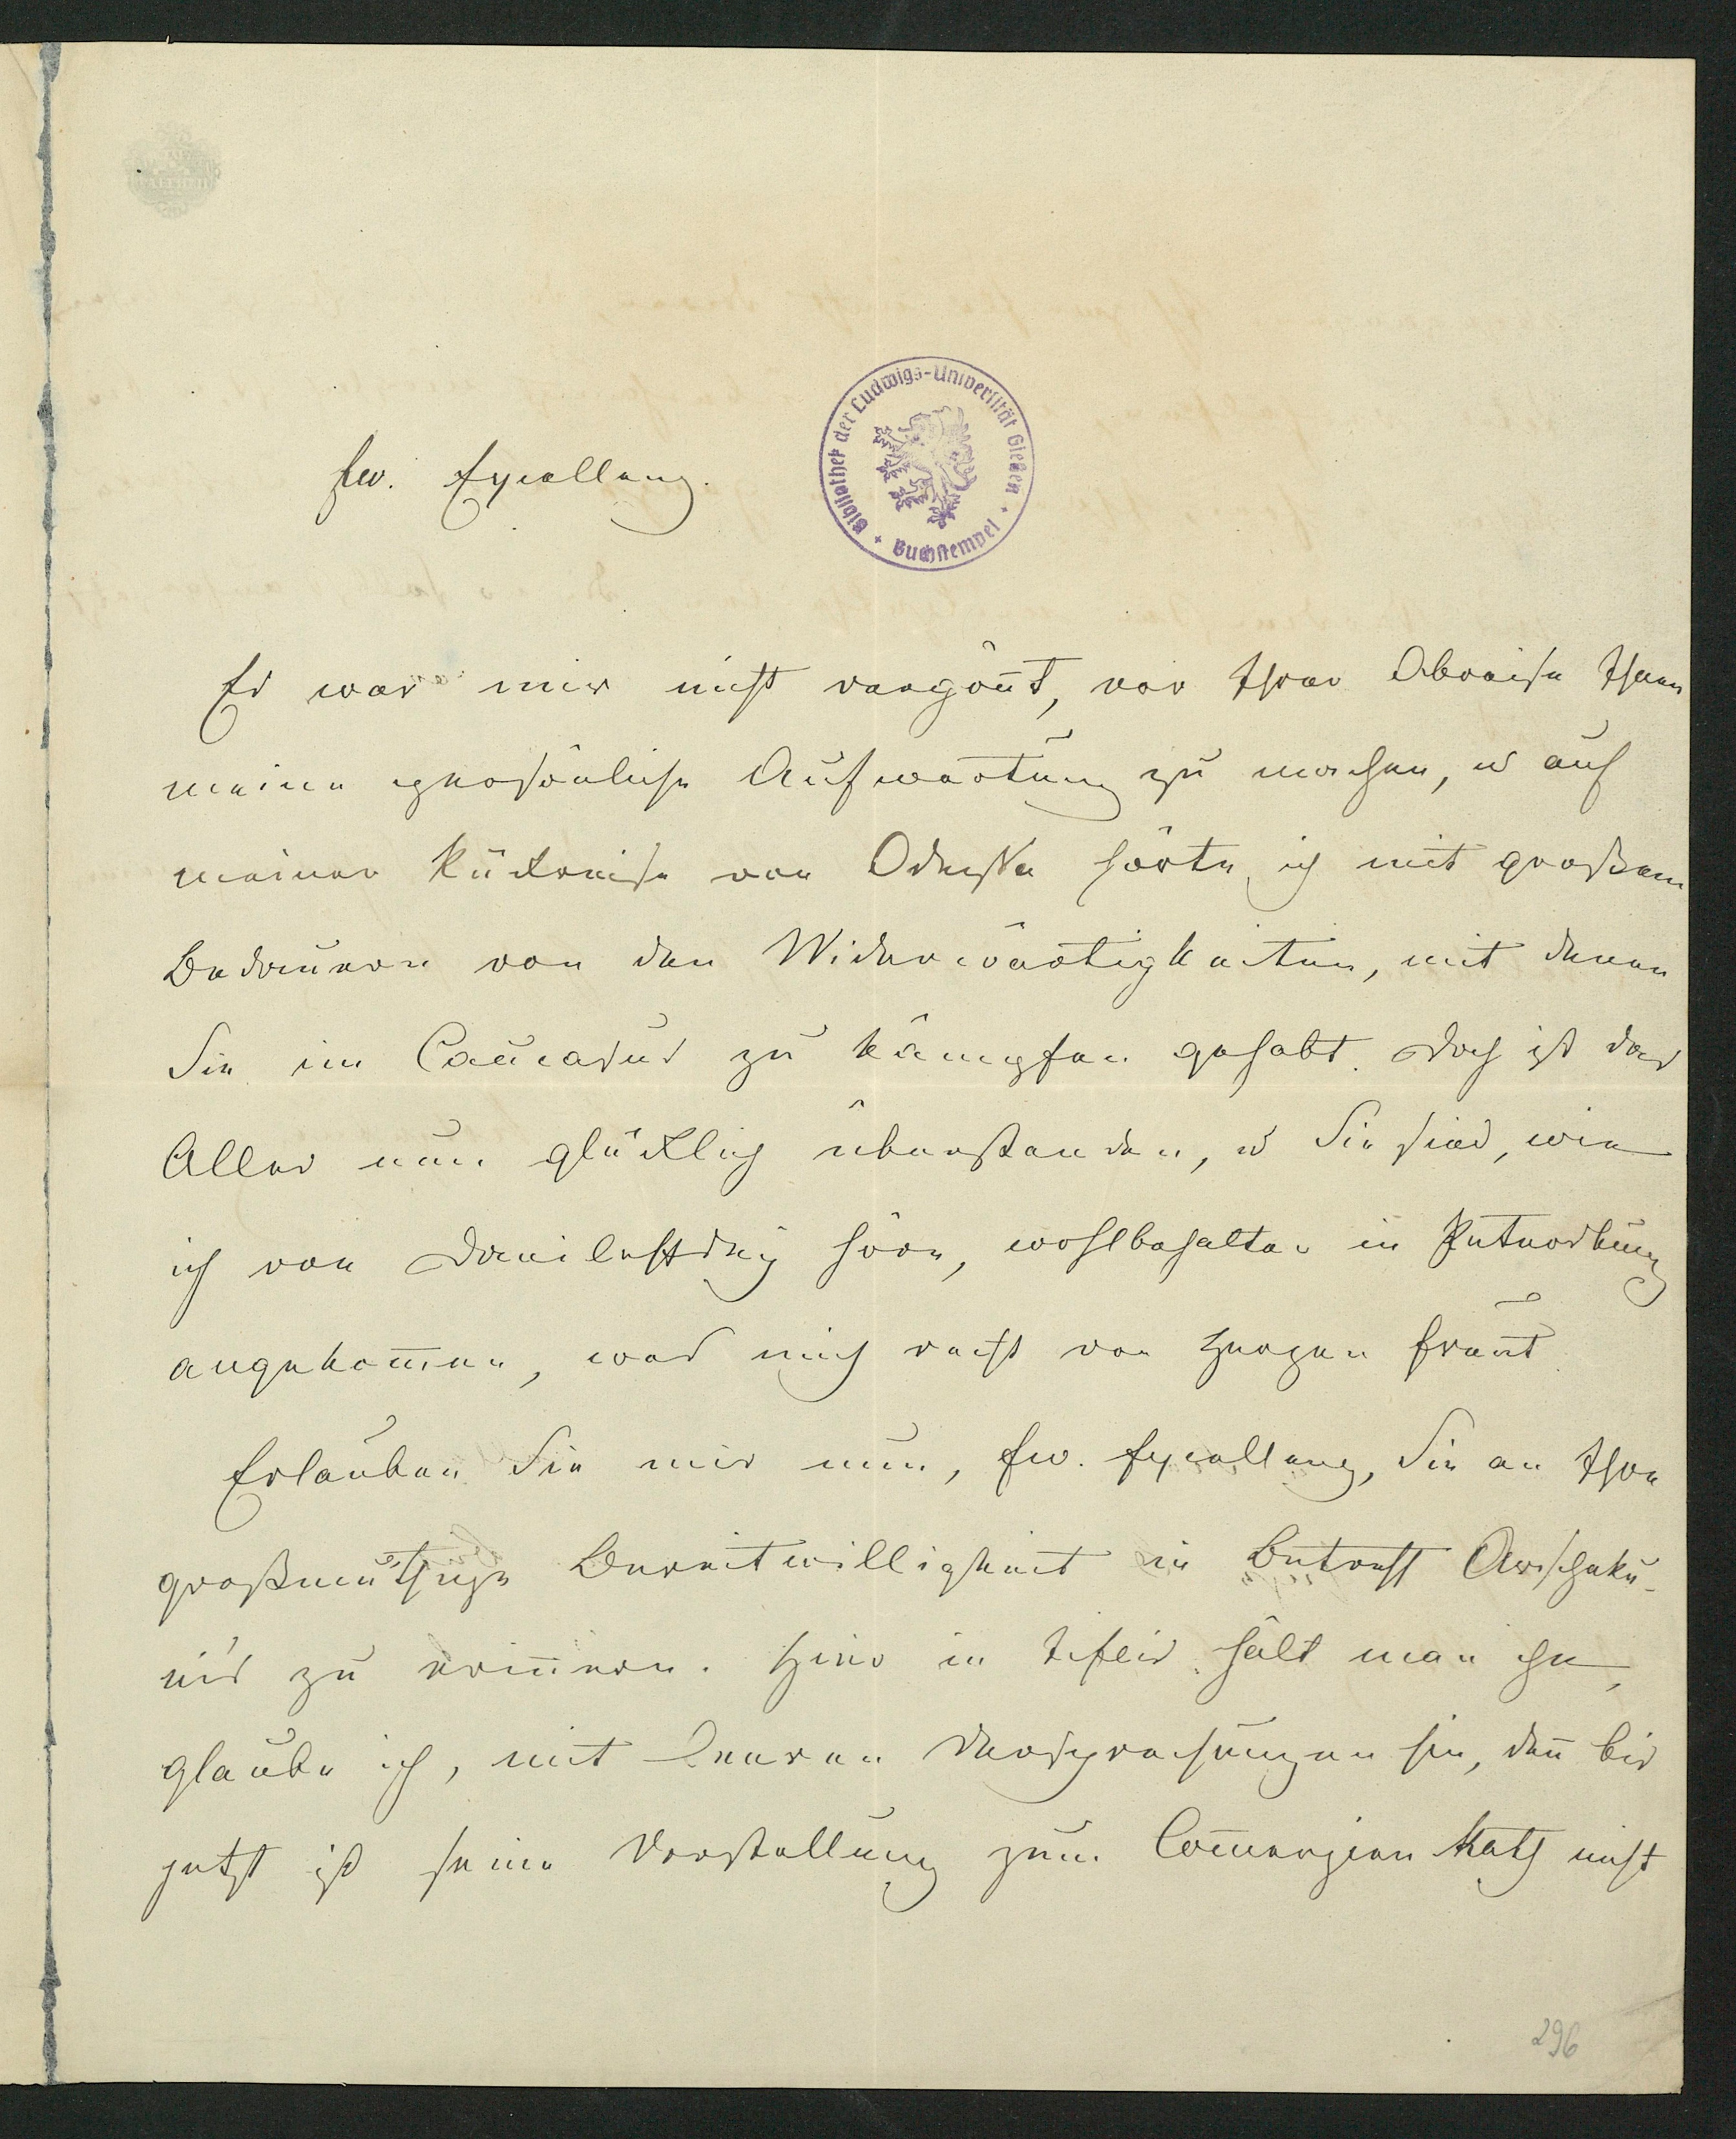 Bibliothek der Ludwigs-Universität Gießen + Buchstempel +
Ew. Excellenz.
Es war mir nicht vergön̄t, vor Ihrer Abreise Ihnen
meine persönliche Aufwartung zu machen, u auf
meiner Rückreise von Odessa hörte ich mit großem
Bedauern von den Widerwärtigkeiten, mit denen
Sie im Caucasus zu kämpfen gehabt. Doch ist das
Alles nun glücklich überstanden, u Sie sind, wie
ich von Danilefsky höre, wohlbehalten in Petersburg
angekom̄en, was mich recht von Herzen freut.
Erlauben Sie mir nun, Ew. Excellenz, Sie an Ihre
großmüthige Bereitwilligkeit in Betreff Arschaku-
ni's zu erin̄ern. Hier in Tiflis hält man ihn,
glaube ich, mit leeren Versprechungen hin, den̄ bis
jetzt ist seine Vorstellung zum Com̄erzien Rath nicht
296